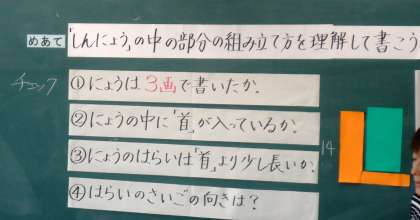 めあて 「しんにょう」の中の部分の組み立て方を理解して書こう
チェック
①にょうは3画で書いたか。
②にょうの中に「首」が入っているか。
③にょうのはらいは「首」より少し長いか。
④はらいのさいごの向きは？
14